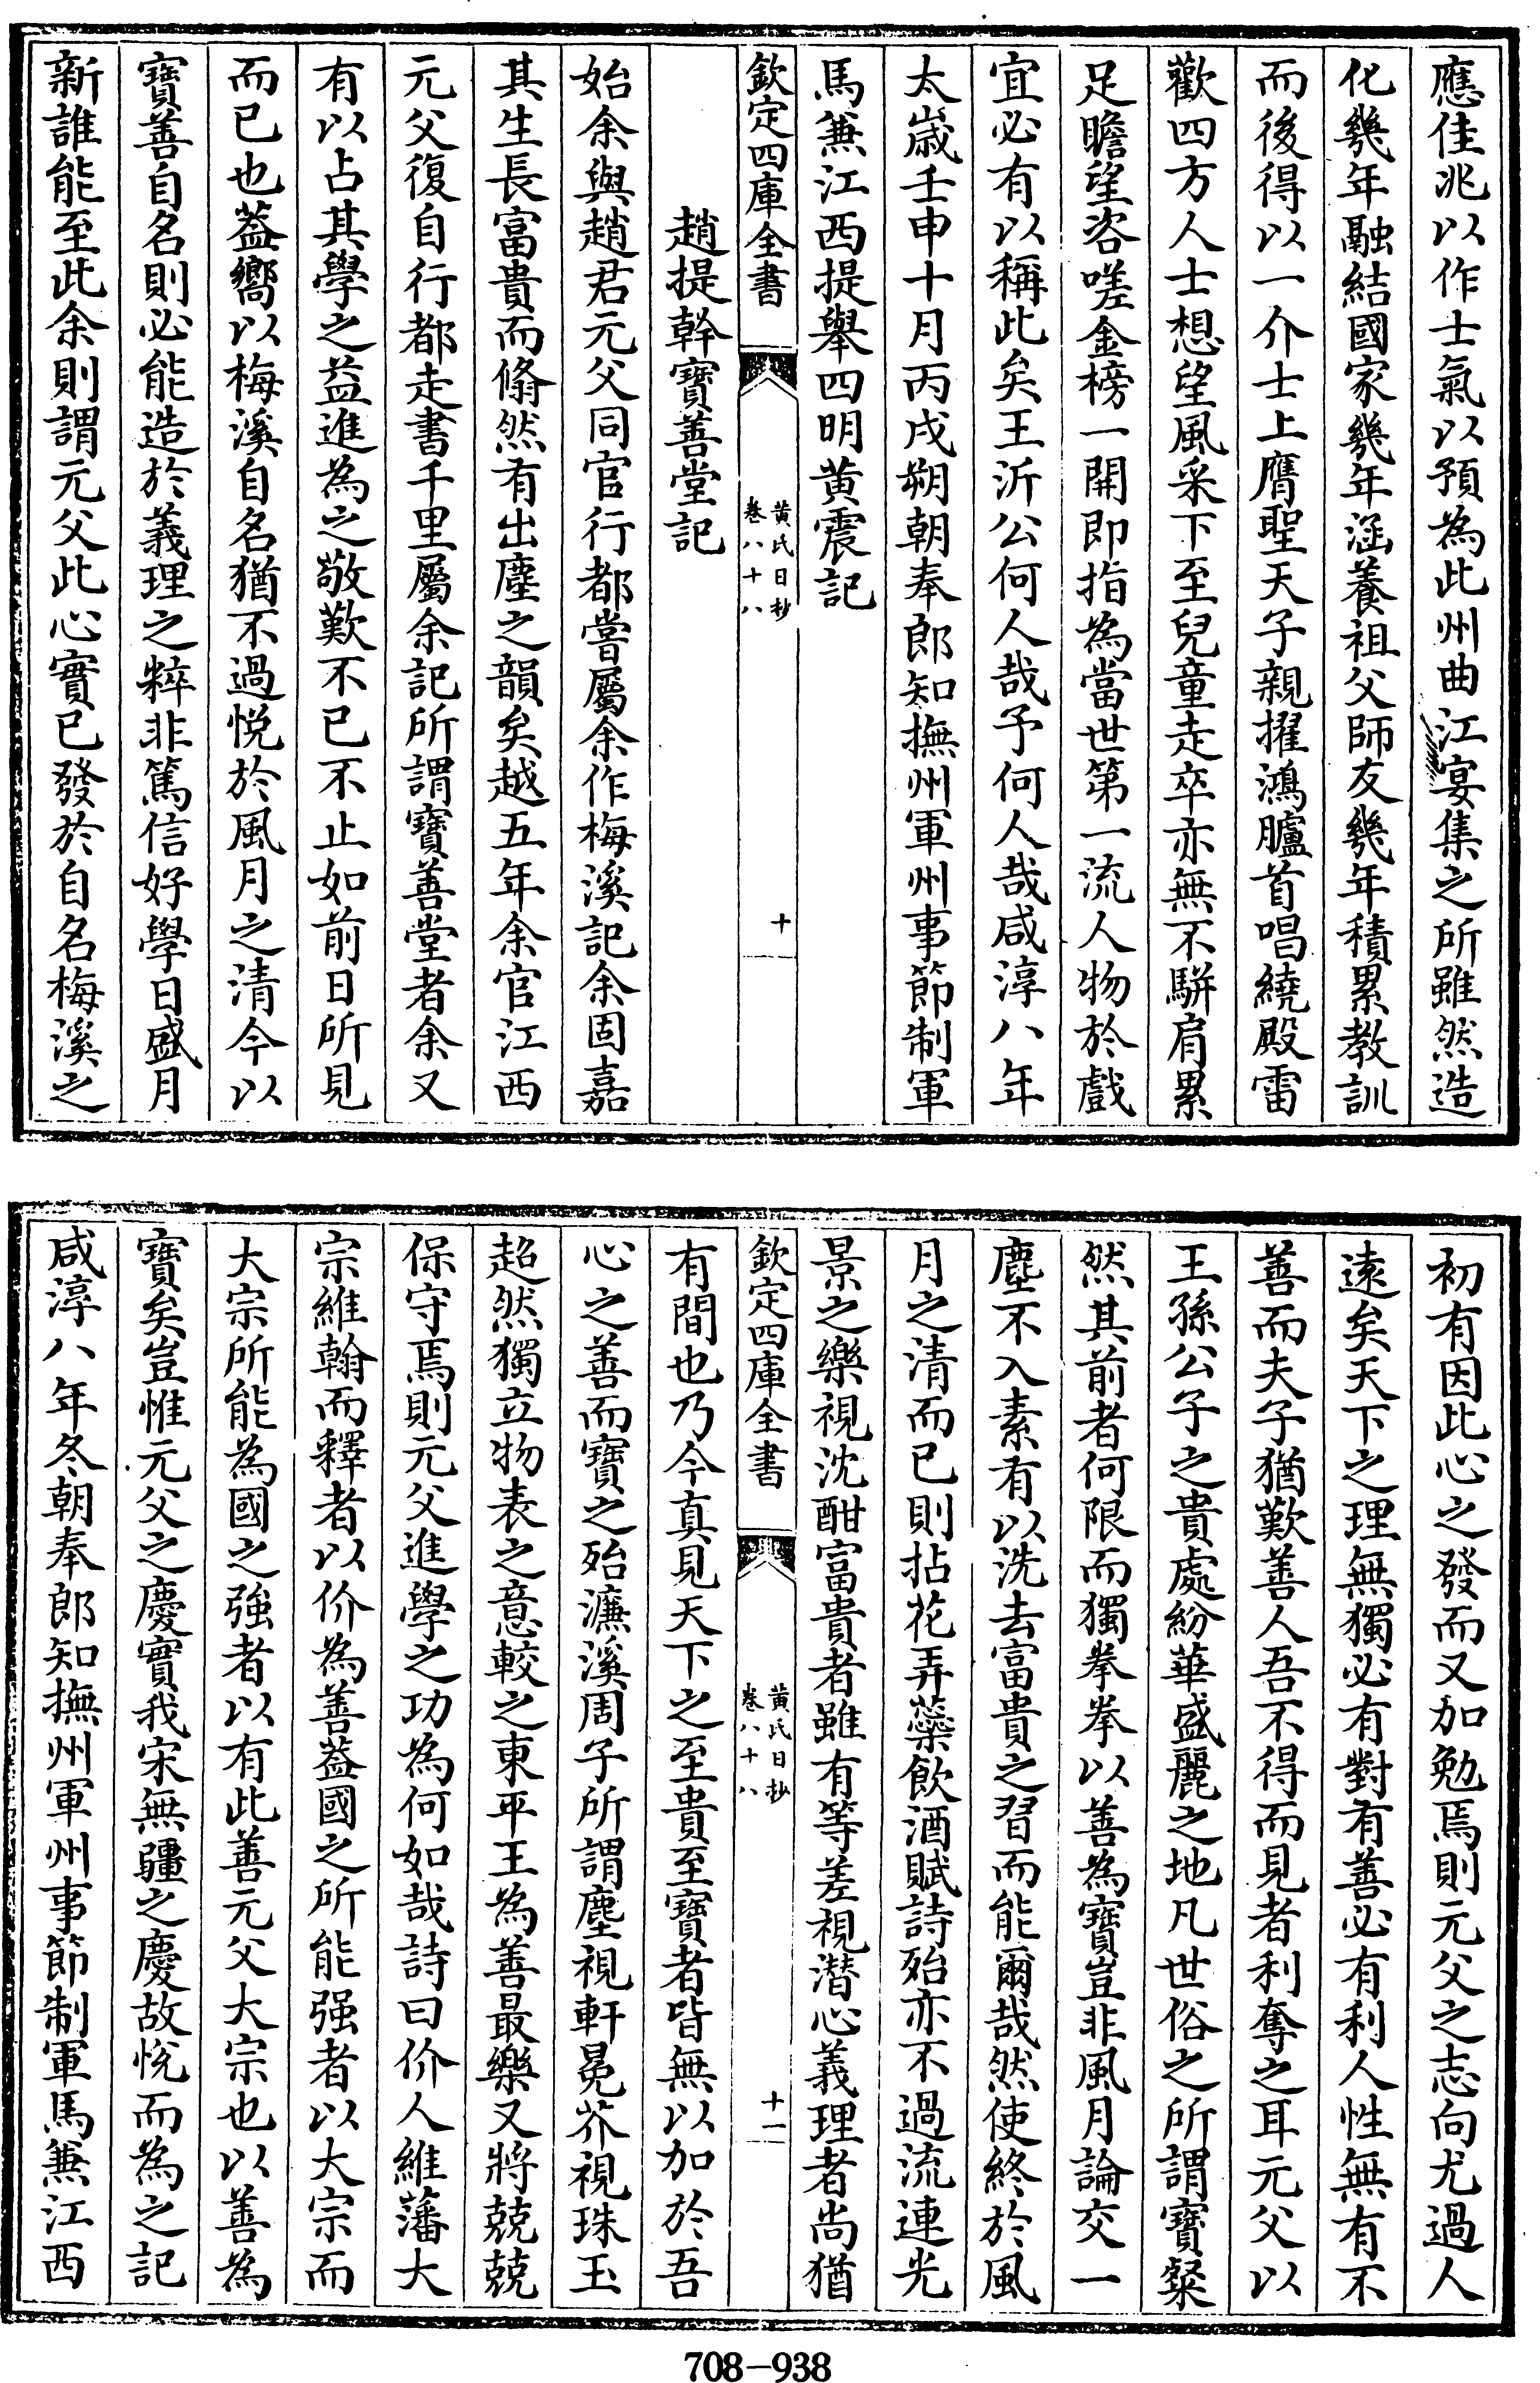 應佳兆以作士氣以預為此州曲江宴集之所雖然造
化幾年融結國家幾年涵養祖父師友幾年積累教訓
而後得以一介士上膺聖天子親擢鴻臚首唱繞殿雷
歡四方人士想望風采下至兒童走卒亦無不駢肩累
足瞻望咨嗟金榜一開即指為當世第一流人物於戲
宜必有以稱此矣王沂公何人哉予何人哉咸淳八年
太歲壬申十月丙戌朔朝奉郎知撫州軍州事節制軍
馬兼江西提舉四明黄震記
欽定四庫全書
黄氏日抄
卷八十八
十
趙提幹寶善堂記
始余與趙君元父同官行都嘗屬余作梅溪記余固嘉
其生長富貴而翛然有出塵之韻矣越五年余官江西
元父復自行都走書千里屬余記所謂寶善堂者余又
有以占其學之益進為之敬歎不已不止如前日所見
而已也葢嚮以梅溪自名猶不過悅於風月之清今以
寶善自名則必能造於義理之粹非篤信好學日盛月
新誰能至此余則謂元父此心實已發於自名梅溪之
初有因此心之發而又加勉焉則元父之志向尤過人
遠矣天下之理無獨必有對有善必有利人性無有不
善而夫子猶歎善人吾不得而見者利奪之耳元父以
王孫公子之貴處紛華盛麗之地凡世俗之所謂寶粲
然其前者何限而獨拳拳以善為寶豈非風月論交一
塵不入素有以洗去富貴之習而能爾哉然使終於風
月之清而已則拈花弄蘂飲酒賦詩殆亦不過流連光
景之樂視沈酣富貴者雖有等差視潜心義理者尚猶
欽定四庫全書
黄氏日抄
卷八十八
十一
有間也乃今真見天下之至貴至寶者皆無以加於吾
心之善而寶之殆濂溪周子所謂塵視軒冕芥視珠玉
超然獨立物表之意較之東平王為善最樂又將兢兢
保守焉則元父進學之功為何如哉詩曰价人維藩大
宗維翰而釋者以价為善葢國之所能强者以大宗而
大宗所能為國之強者以有此善元父大宗也以善為
寶矣豈惟元父之慶實我宋無疆之慶故悅而為之記
咸淳八年冬朝奉郎知撫州軍州事節制軍馬兼江西
708-938